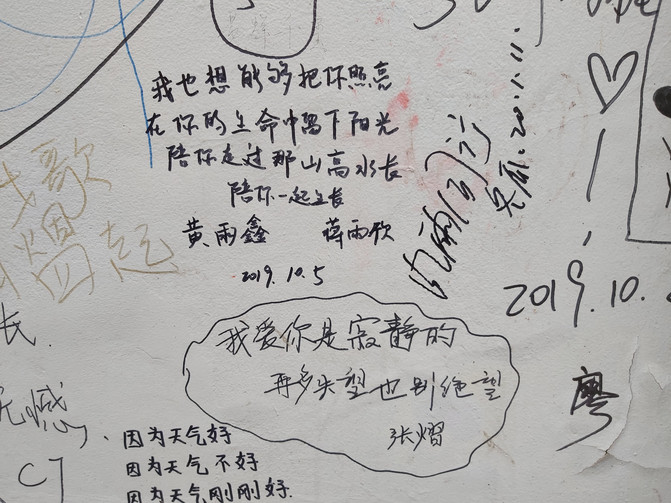 我也想能够把你照亮
在你的生命中留下阳光
陪你走过那山高水长
陪你一起生长
黄雨鑫 蒋雨欣
2019.10.5
歌
烟
起
风雨同行
♡
2019.10.
廖
我爱你是寂静的
再多失望也别绝望
张熠
长.
无憾
CJ
因为天气好
因为天气不好
因为天气刚刚好.